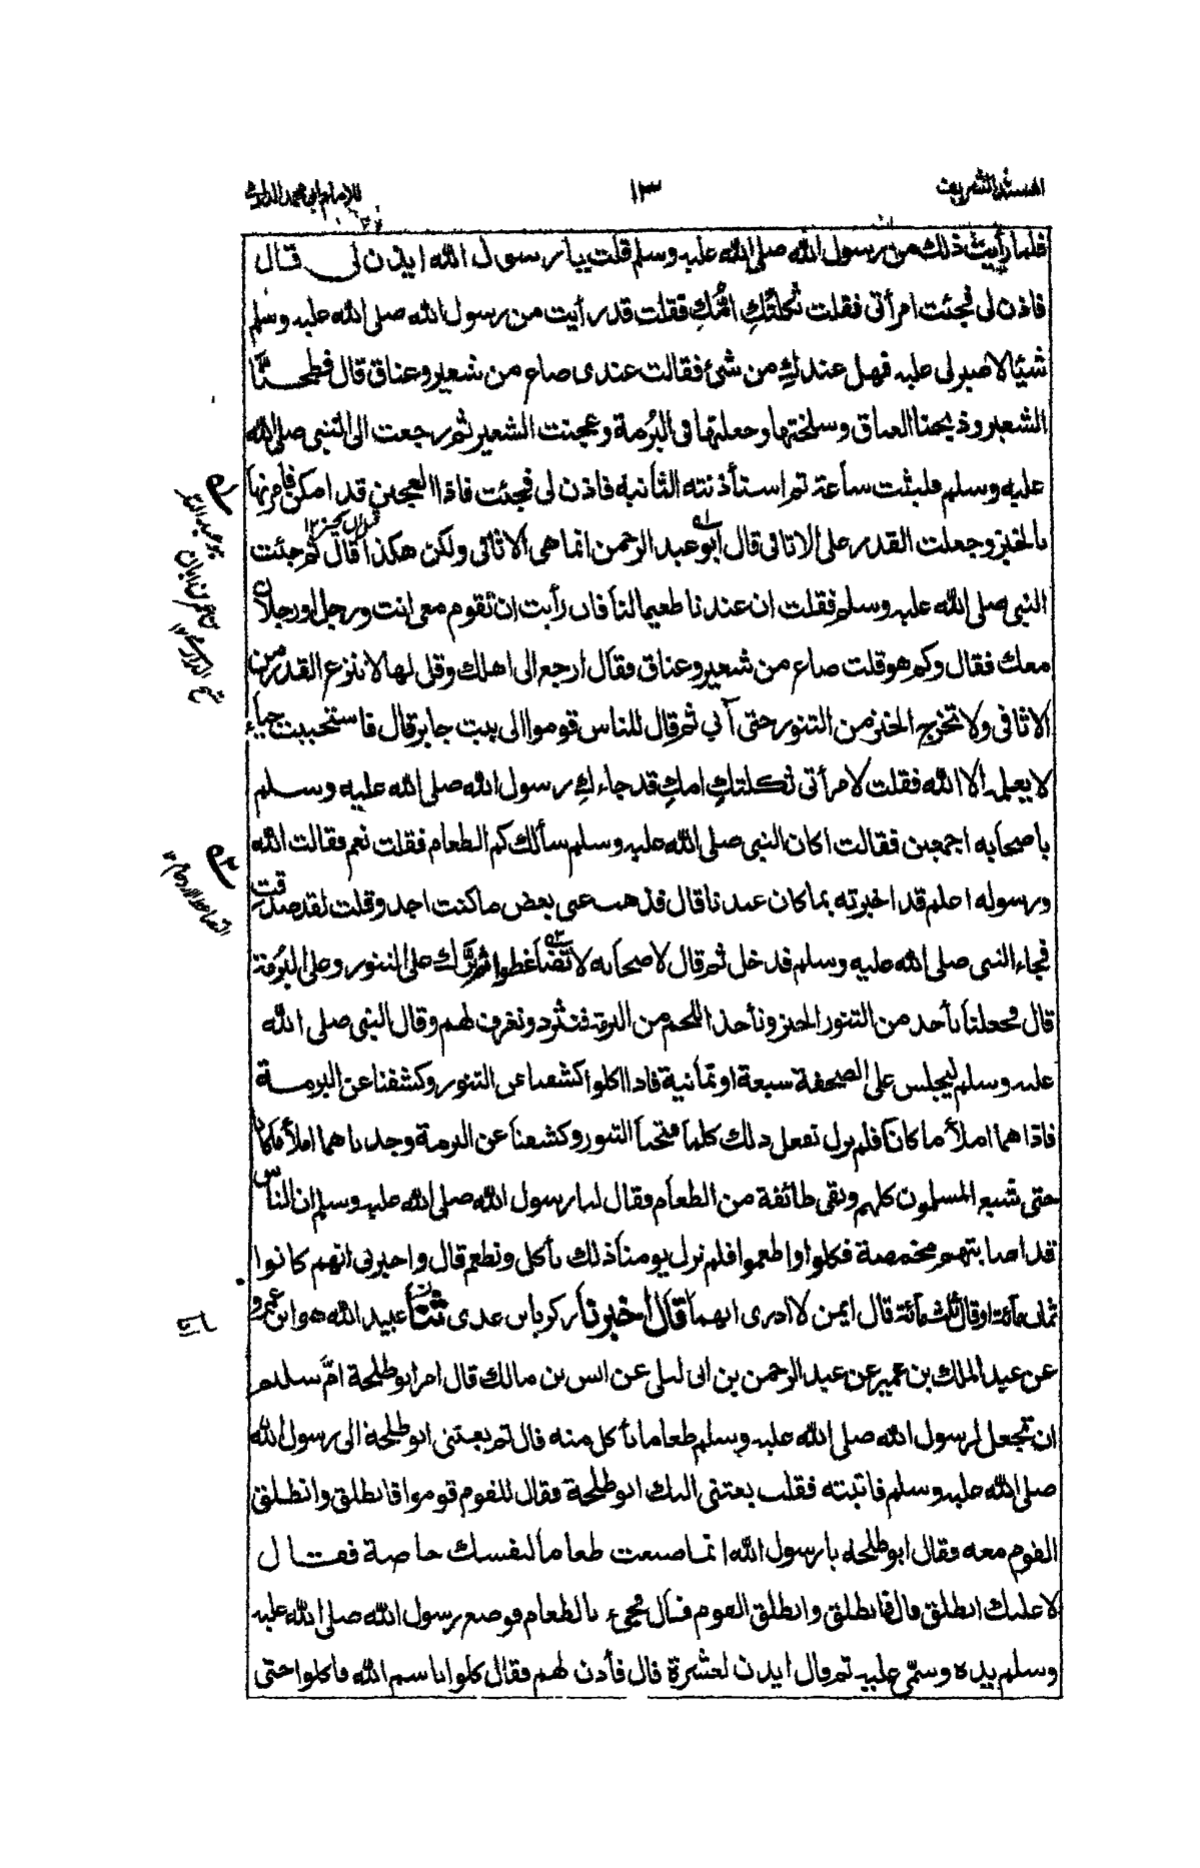 المسند الشريف ١٣ للإمام ابي محمد الدارمي
فلما رأيت ذلك من رسول الله صلى الله عليه وسلم قلت يا رسول الله ايذن لى قال
فاذن لى فجئت امرأتى فقلت ثكلتكِ امُّكِ فقلت قد رأيت من رسول الله صلى الله عليه وسلم
شيئا لا صبر لى عليه فهل عندكِ من شئ فقالت عندى صاع من شعير وعناق قال فطحنّا
الشعير وذبحنا العناق وسلختها وجعلتها فى البُرمة وعجنت الشعير ثم رجعت الى النبى صلى الله
عليه وسلم فلبثت ساعة ثم استأذنته الثانية فاذن لى فجئت فاذا العجين قد امكن فامرتها
بالخبز وجعلت القدر على الاثافى قال ابو عبد الرحمن انما هى الاثافى ولكن هكذا قال ثم جئت
النبى صلى الله عليه وسلم فقلت ان عندنا طعيما لنا فان رأيت ان تقوم معى انت ورجل او رجلان
معك فقال وكم هو قلت صاع من شعير وعناق فقال ارجع الى اهلك وقل لها لا تنزع القدر من
الاثافى ولا تخرج الخبز من التنور حتى آتي ثم قال للناس قوموا الى بيت جابر قال فاستحييت حياء
لا يعلمه الا الله فقلت لامرأتى ثكلتكِ امكِ قد جاءكِ رسول الله صلى الله عليه وسلم
باصحابه اجمعين فقالت اكان النبى صلى الله عليه وسلم سألك كم الطعام فقلت نعم فقالت الله
ورسوله اعلم قد اخبرته بما كان عندنا قال فذهب عنى بعض ما كنت اجد وقلت لقد صدقتِ
فجاء النبى صلى الله عليه وسلم فدخل ثم قال لاصحابه لا تضاغطوا ثم برّك على التنور وعلى البُرمة
قال فجعلنا نأخذ من التنور الخبز ونأخذ اللحم من البرمة فنثرد ونغرف لهم وقال النبى صلى الله
عليه وسلم ليجلس على الصحفة سبعة او ثمانية فاذا اكلوا كشفنا عن التنور وكشفنا عن البرمة
فاذا هما املأ ما كانا فلم نزل نفعل ذلك كلما فتحنا التنور وكشفنا عن البرمة وجدناهما املأ ما كانا
حتى شبع المسلمون كلهم وبقى طائفة من الطعام فقال لنا رسول الله صلى الله عليه وسلم ان الناس
قد اصابتهم مخمصة فكلوا واطعموا فلم نزل يومنا ذلك نأكل ونطعم قال واخبرنى انهم كانوا
ثمان مائة او قال ثلث مائة قال ايمن لا ادرى ايهما قال اخبرنا زكريا بن عدى ثنا عبيد الله هو ابن عمرو
عن عبد الملك بن عمير عن عبد الرحمن بن ابى ليلى عن انس بن مالك قال امر ابو طلحة امّ سليم
ان تجعل لرسول الله صلى الله عليه وسلم طعاما يأكل منه قال ثم بعثنى ابو طلحة الى رسول الله
صلى الله عليه وسلم فاتيته فقلت بعثنى اليك ابو طلحة فقال للقوم قوموا فانطلق وانطلق
القوم معه فقال ابو طلحة يا رسول الله انما صنعت طعاما لنفسك خاصة فقال
لا عليك انطلق قال فانطلق وانطلق القوم قال فجئ بالطعام فوضع رسول الله صلى الله عليه
وسلم يده وسمّى عليه ثم قال ايذن لعشرة قال فأذن لهم فقال كلوا باسم الله فاكلوا حتى